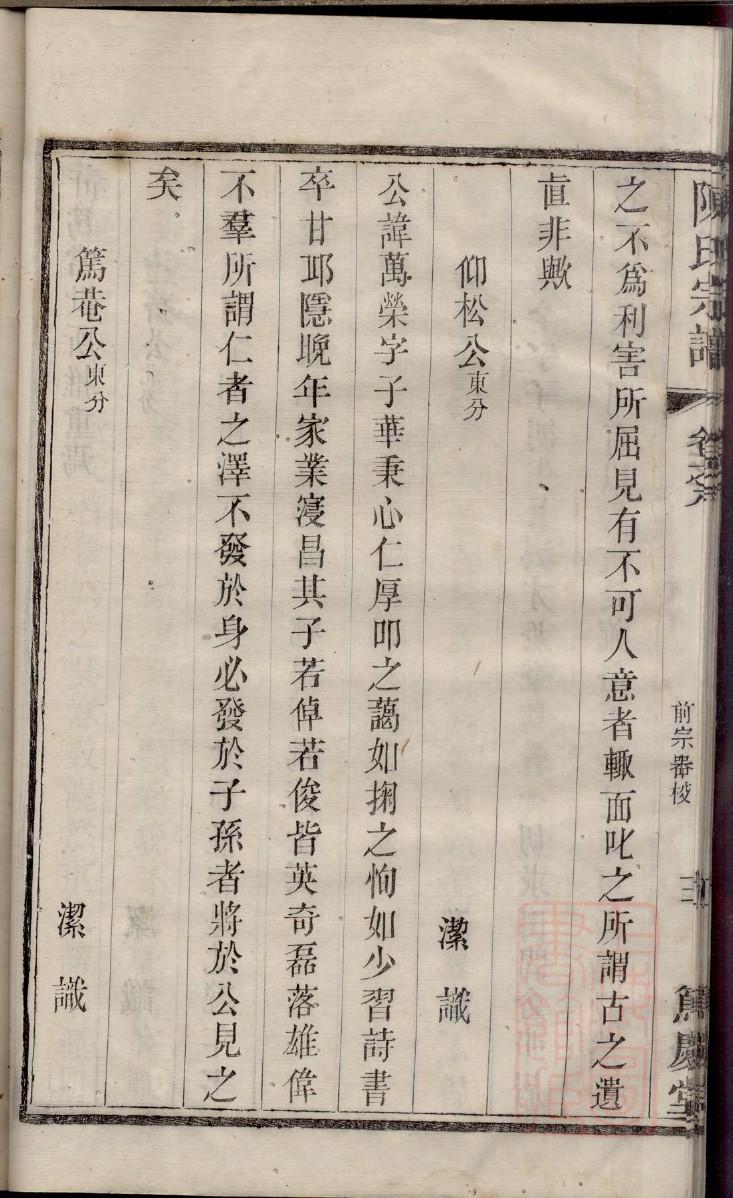 陳氏宗譜
前宗器校
篤慶堂
之不爲利害所屈見有不可人意者輙面叱之所謂古之遺
直非歟
仰松公東分
潔識
公諱萬榮字子華秉心仁厚叩之藹如掬之恂如少習詩書
卒甘邱隱晚年家業寖昌其子若倬若俊皆英奇磊落雄偉
不羣所謂仁者之澤不發於身必發於子孫者將於公見之
矣
篤菴公東分
潔識